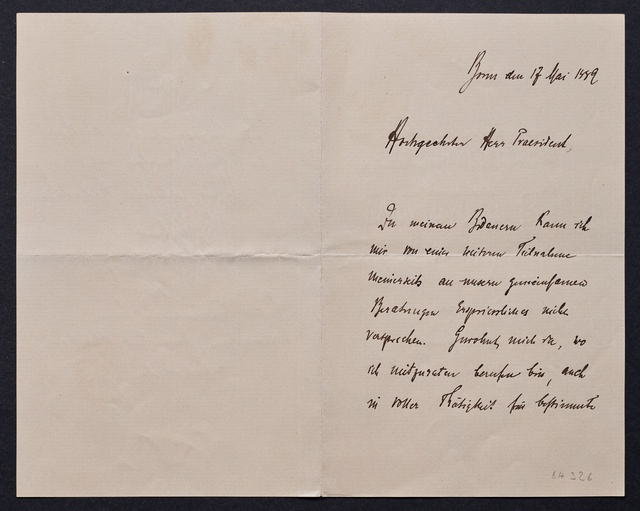 Bonn den 17 Mai 1889
Hochgeehrter Herr Praesident,
Zu meinem Bedauern kann ich
mir von einer weiteren Teilnahme
meinerseits an unsern gemeinsamen
Beratungen Erspriessliches nicht
versprechen. Gewohnt mich da, wo
ich mitzuraten berufen bin, auch
in voller Thätigkeit für bestimmte